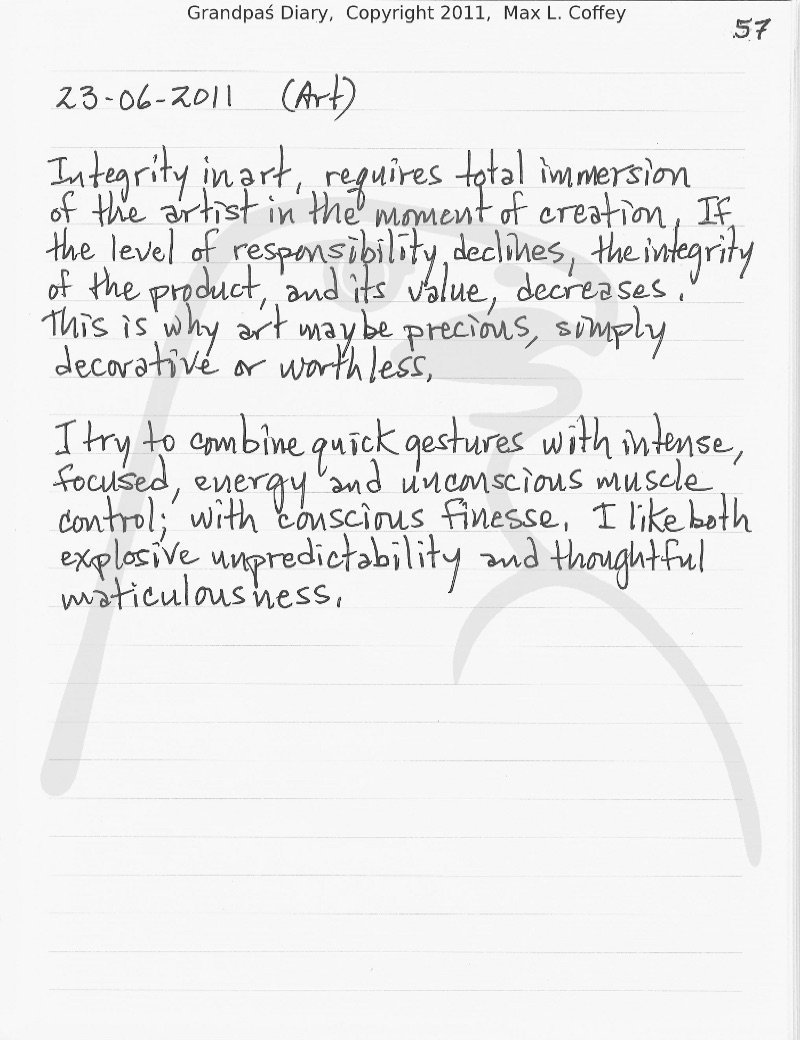 Grandpaś Diary, Copyright 2011, Max L. Coffey
57
23-06-2011 (Art)
Integrity in art, requires total immersion
of the artist in the moment of creation. If
the level of responsibility declines, the integrity
of the product, and its value, decreases.
This is why art maybe precious, simply
decorative or worthless.
I try to combine quick gestures with intense,
focused, energy and unconscious muscle
control; with conscious finesse. I like both
explosive unpredictability and thoughtful
maticulousness.